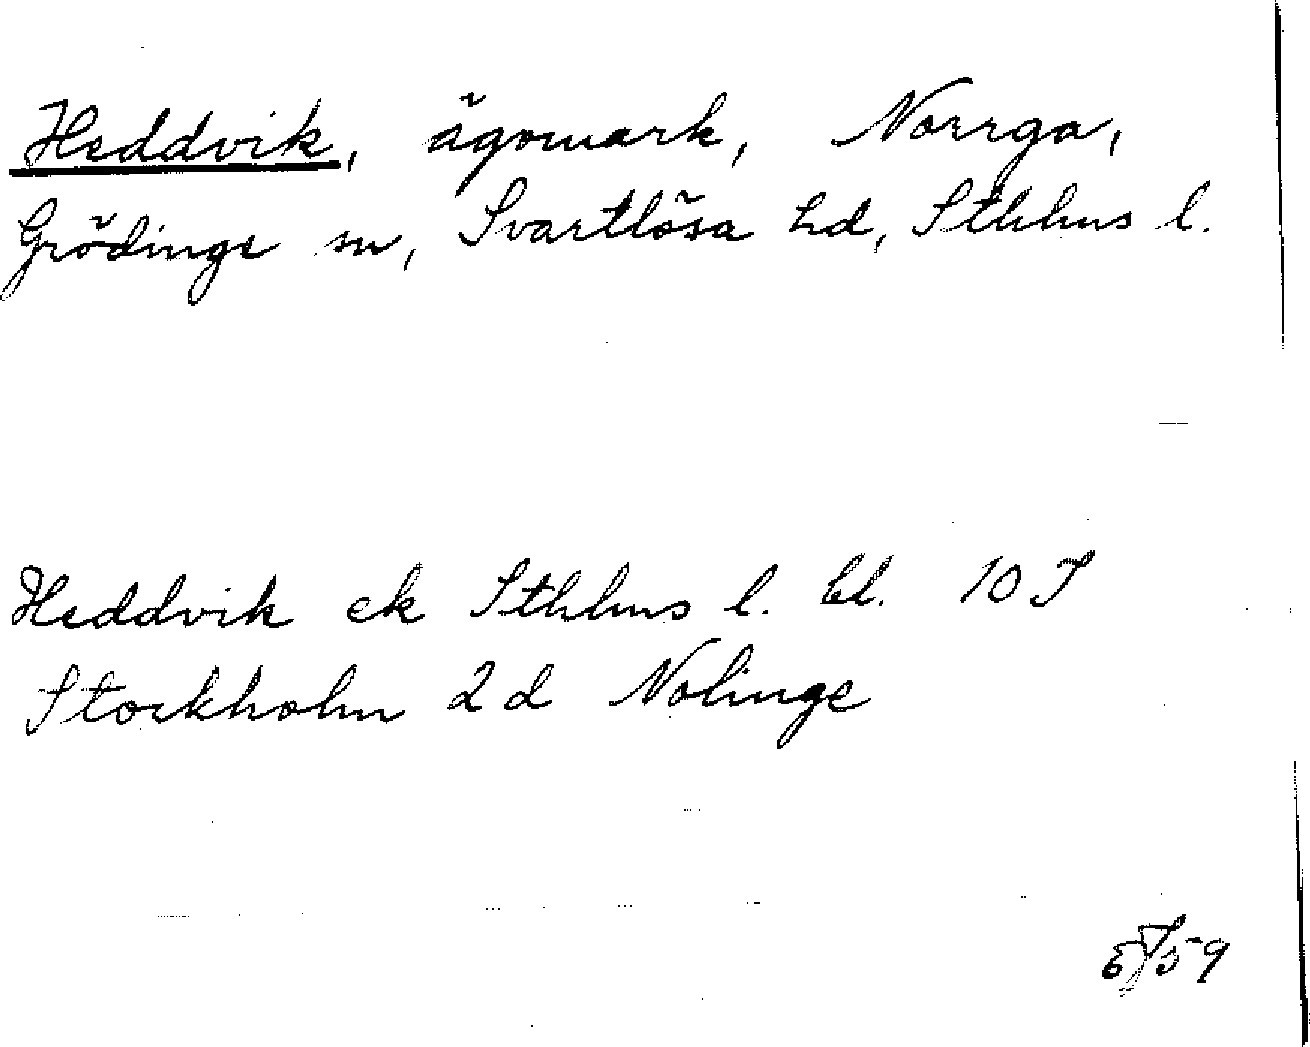 Heddvik, ägomark, Norrga,
Grödinge sn, Svartlösa hd, Sthlms l.
Heddvik ek Sthlms l. bl. 10 J
Stockholm 2d Nolinge